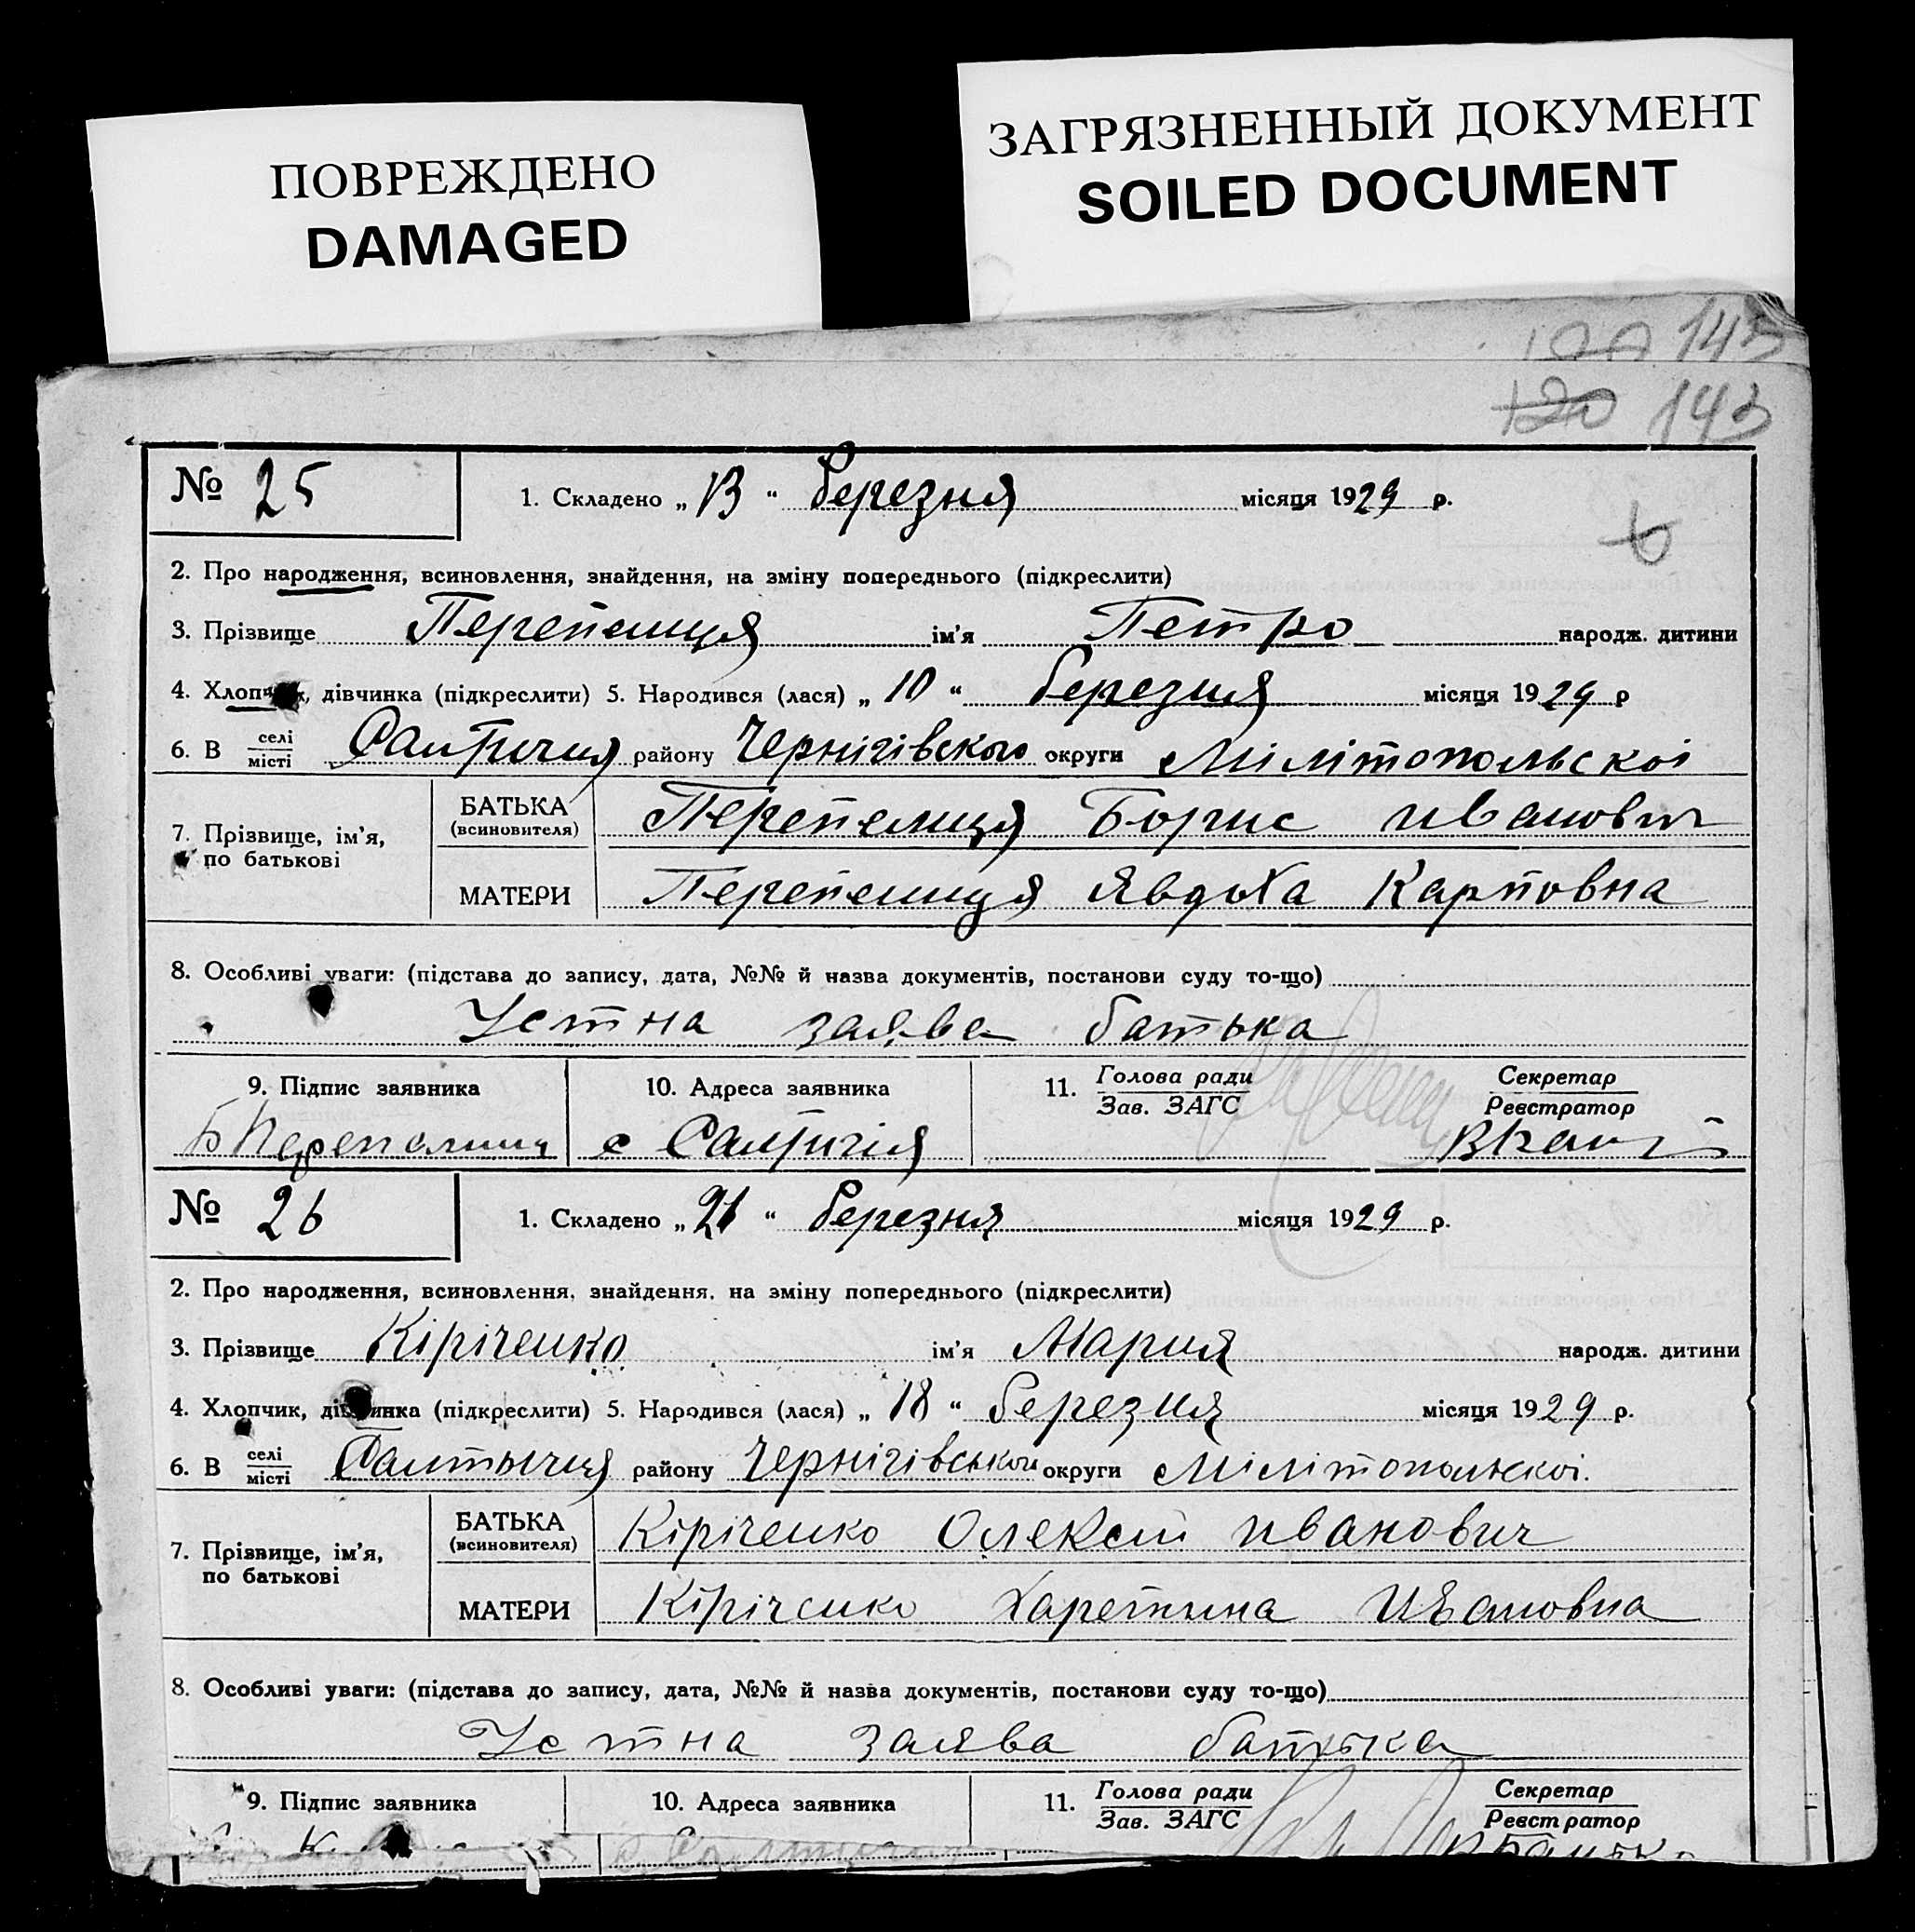 ПОВРЕЖДЕНО
DAMAGED
ЗАГРЯЗНЕННЫЙ ДОКУМЕНТ
SOILED DOCUMENT
143
120 143
№ 25 1. Складено „13“ березня місяця 1929 р.
2. Про народження, всиновлення, знайдення, на зміну попереднього (підкреслити)
3. Прізвище Перепелиця ім'я Петро народж. дитини
4. Хлопчик, дівчинка (підкреслити) 5. Народився (лася) „10“ березня місяця 1929 р
6. В селі/місті Салтичия району Чернігівского округи Мілітопольскоі
7. Прізвище, ім'я, по батькові
БАТЬКА (всиновителя) Перепелиця Борис Иванович
МАТЕРИ Перепелиця Явдоха Карповна
8. Особливі уваги: (підстава до запису, дата, №№ й назва документів, постанови суду то-що)
Устна заява батька
9. Підпис заявника 10. Адреса заявника 11. Голова ради/Зав. ЗАГС Секретар/Реєстратор
Б Перепелиця с Салтичія
№ 26 1. Складено „21“ березня місяця 1929 р.
2. Про народження, всиновлення, знайдення, на зміну попереднього (підкреслити)
3. Прізвище Кіріченко ім'я Мария народж. дитини
4. Хлопчик, дівчинка (підкреслити) 5. Народився (лася) „18“ березня місяця 1929 р.
6. В селі/місті Салтычия району Чернігівськои округи Мілітопольскоі.
7. Прізвище, ім'я, по батькові
БАТЬКА (всиновителя) Кіріченко Олексій Иванович
МАТЕРИ Кіріченко Харетына Ивановна
8. Особливі уваги: (підстава до запису, дата, №№ й назва документів, постанови суду то-що)
Устна заява батька
9. Підпис заявника 10. Адреса заявника 11. Голова ради/Зав. ЗАГС Секретар/Реєстратор